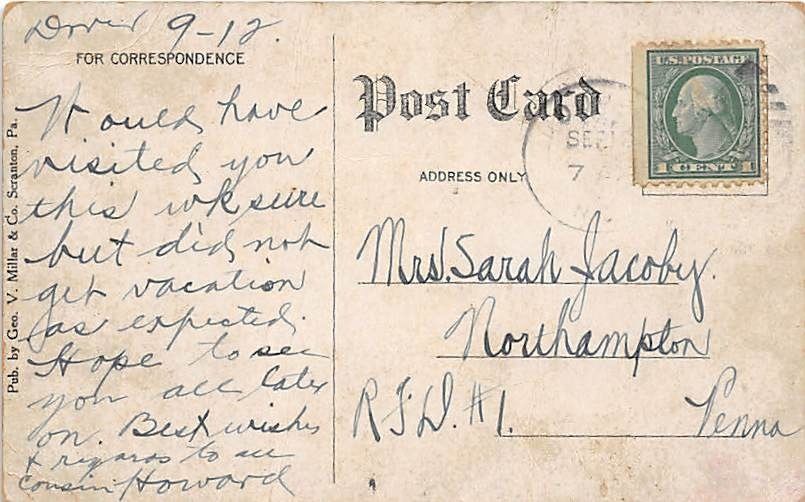 Dover 9-12.
FOR CORRESPONDENCE
Would have
visited you
this wk sure
but did not
get vacation
as expected.
Hope to see
you all later
on. Best wishes
& regards to all
Cousin Howard
Pub. by Geo. V. Millar & Co. Scranton, Pa.
Post Card
ADDRESS ONLY
SEP
7
U.S. POSTAGE
1 CENT 1
Mrs. Sarah Jacoby.
Northampton
R.F.D. #1. Penna